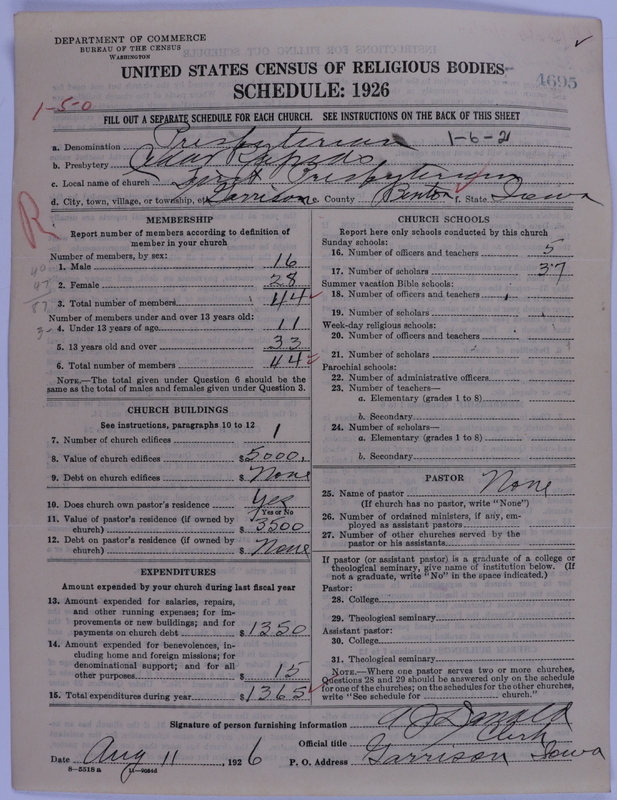 DEPARTMENT OF COMMERCE
BUREAU OF THE CENSUS
WASHINGTON
UNITED STATES CENSUS OF RELIGIOUS BODIES
4695
SCHEDULE: 1926
1-5-0
FILL OUT A SEPARATE SCHEDULE FOR EACH CHURCH. SEE INSTRUCTIONS ON THE BACK OF THIS SHEET
a. Denomination Presbyterian 1-6-21
b. Presbytery Cedar Rapids
c. Local name of church First Presbyterian
d. City, town, village, or township, etc. Garrison e. County Benton f. State Iowa
R
MEMBERSHIP
Report number of members according to definition of
member in your church
Number of members, by sex:
1. Male 16
2. Female 28
3. Total number of members 44
Number of members under and over 13 years old:
4. Under 13 years of age 11
5. 13 years old and over 33
6. Total number of members 44
40
47
87
3-
NOTE.—The total given under Question 6 should be the
same as the total of males and females given under Question 3.
CHURCH BUILDINGS
See instructions, paragraphs 10 to 12
7. Number of church edifices 1
8. Value of church edifices $5000.
9. Debt on church edifices $ None
10. Does church own pastor's residence Yes
Yes or No
11. Value of pastor's residence (if owned by
church) $3500
12. Debt on pastor's residence (if owned by
church) $ None
EXPENDITURES
Amount expended by your church during last fiscal year
13. Amount expended for salaries, repairs,
and other running expenses; for im-
provements or new buildings; and for
payments on church debt $1350
14. Amount expended for benevolences, in-
cluding home and foreign missions; for
denominational support; and for all
other purposes $15
15. Total expenditures during year $1365
CHURCH SCHOOLS
Report here only schools conducted by this church
Sunday schools:
16. Number of officers and teachers 5
17. Number of scholars 37
Summer vacation Bible schools:
18. Number of officers and teachers
19. Number of scholars
Week-day religious schools:
20. Number of officers and teachers
21. Number of scholars
Parochial schools:
22. Number of administrative officers
23. Number of teachers—
a. Elementary (grades 1 to 8)
b. Secondary
24. Number of scholars—
a. Elementary (grades 1 to 8)
b. Secondary
PASTOR
25. Name of pastor None
(If church has no pastor, write "None")
26. Number of ordained ministers, if any, em-
ployed as assistant pastors
27. Number of other churches served by the
pastor or his assistants
If pastor (or assistant pastor) is a graduate of a college or
theological seminary, give name of institution below. (If
not a graduate, write "No" in the space indicated.)
Pastor:
28. College
29. Theological seminary
Assistant pastor:
30. College
31. Theological seminary
NOTE.—Where one pastor serves two or more churches,
Questions 28 and 29 should be answered only on the schedule
for one of the churches; on the schedules for the other churches,
write "See schedule for church."
Signature of person furnishing information
Official title Clerk
Date Aug 11, 1926 P. O. Address Garrison Iowa
8—5518 a